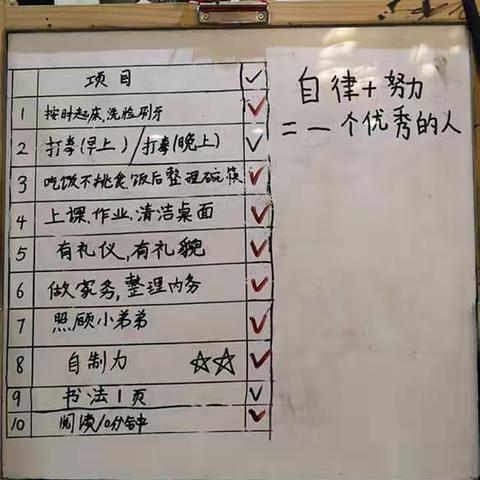 项目 ✓
1 按时起床,洗脸刷牙 ✓
2 打拳(早上)/打拳(晚上) ✓
3 吃饭不挑食,饭后整理碗筷 ✓
4 上课、作业、清洁桌面 ✓
5 有礼仪,有礼貌 ✓
6 做家务,整理内务 ✓
7 照顾小弟弟 ✓
8 自制力 ☆☆ ✓
9 书法1页 ✓
10 阅读10分钟 ✓
自律+努力
=一个优秀的人